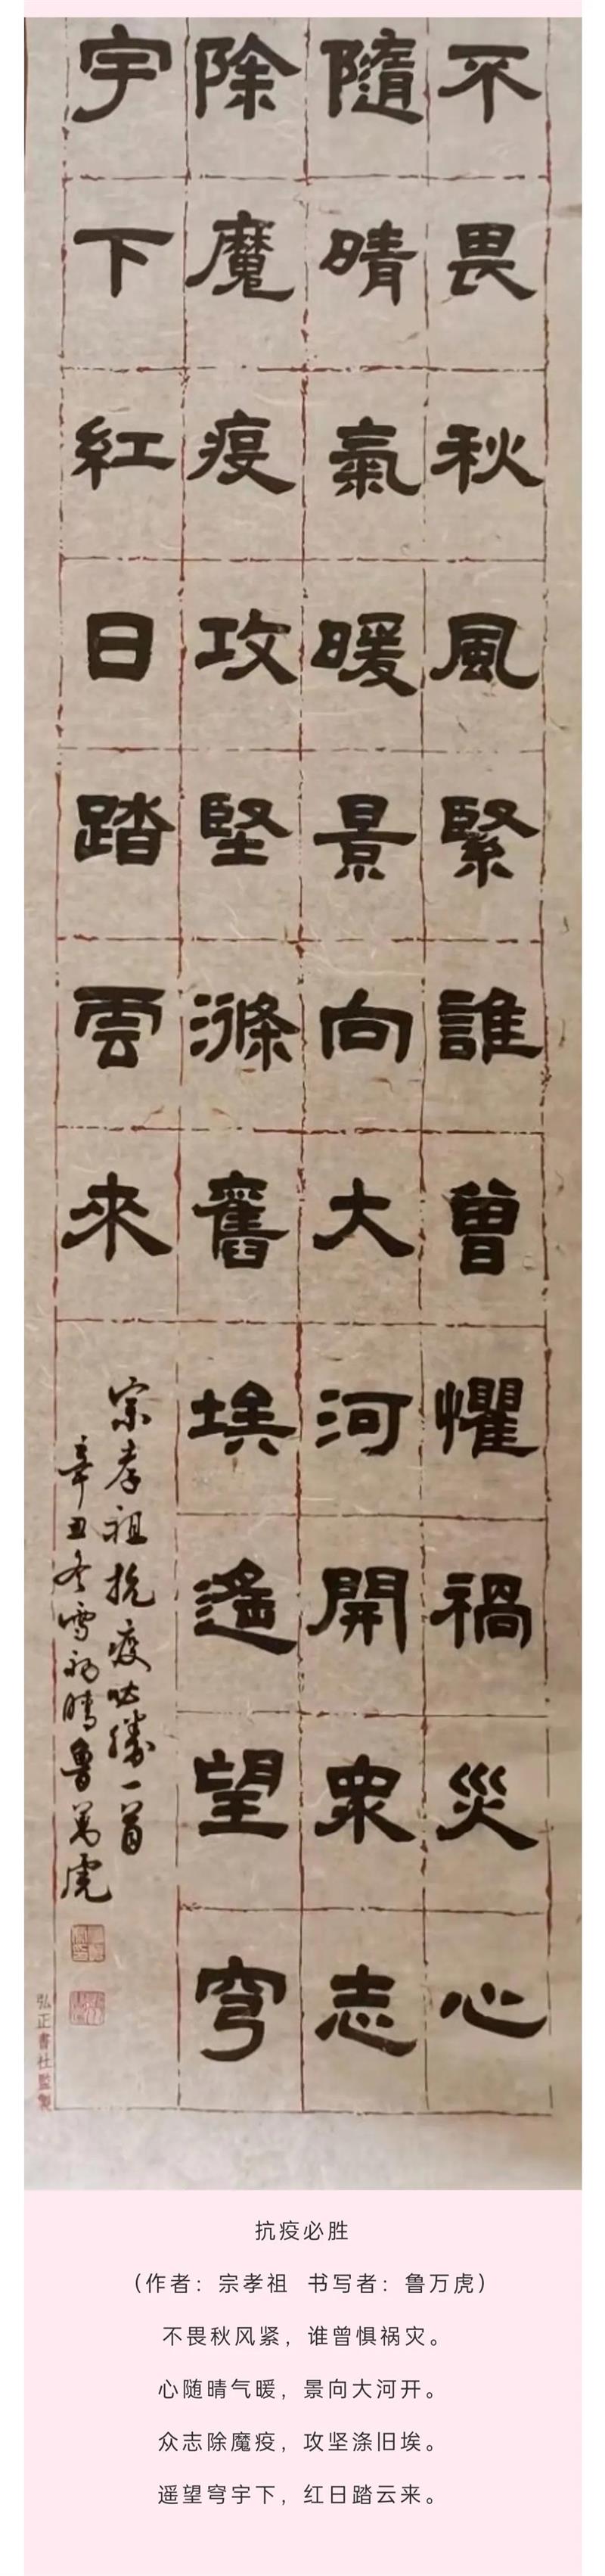 不畏秋風緊誰曾懼禍災心
隨晴氣暖景向大河開衆志
除魔疫攻堅滌舊埃遙望穹
宇下紅日踏雲來
宗孝祖抗疫必勝一首
辛丑冬雪初晴魯萬虎
弘正書社監製
抗疫必胜
（作者：宗孝祖 书写者：鲁万虎）
不畏秋风紧，谁曾惧祸灾。
心随晴气暖，景向大河开。
众志除魔疫，攻坚涤旧埃。
遥望穹宇下，红日踏云来。